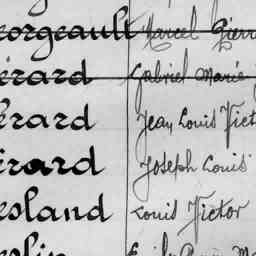 eorgeault Marcel Pierr
érard Gabriel Marie
érard Jean Louis Vict
érard Joseph Louis
esland Louis Victor
eslin